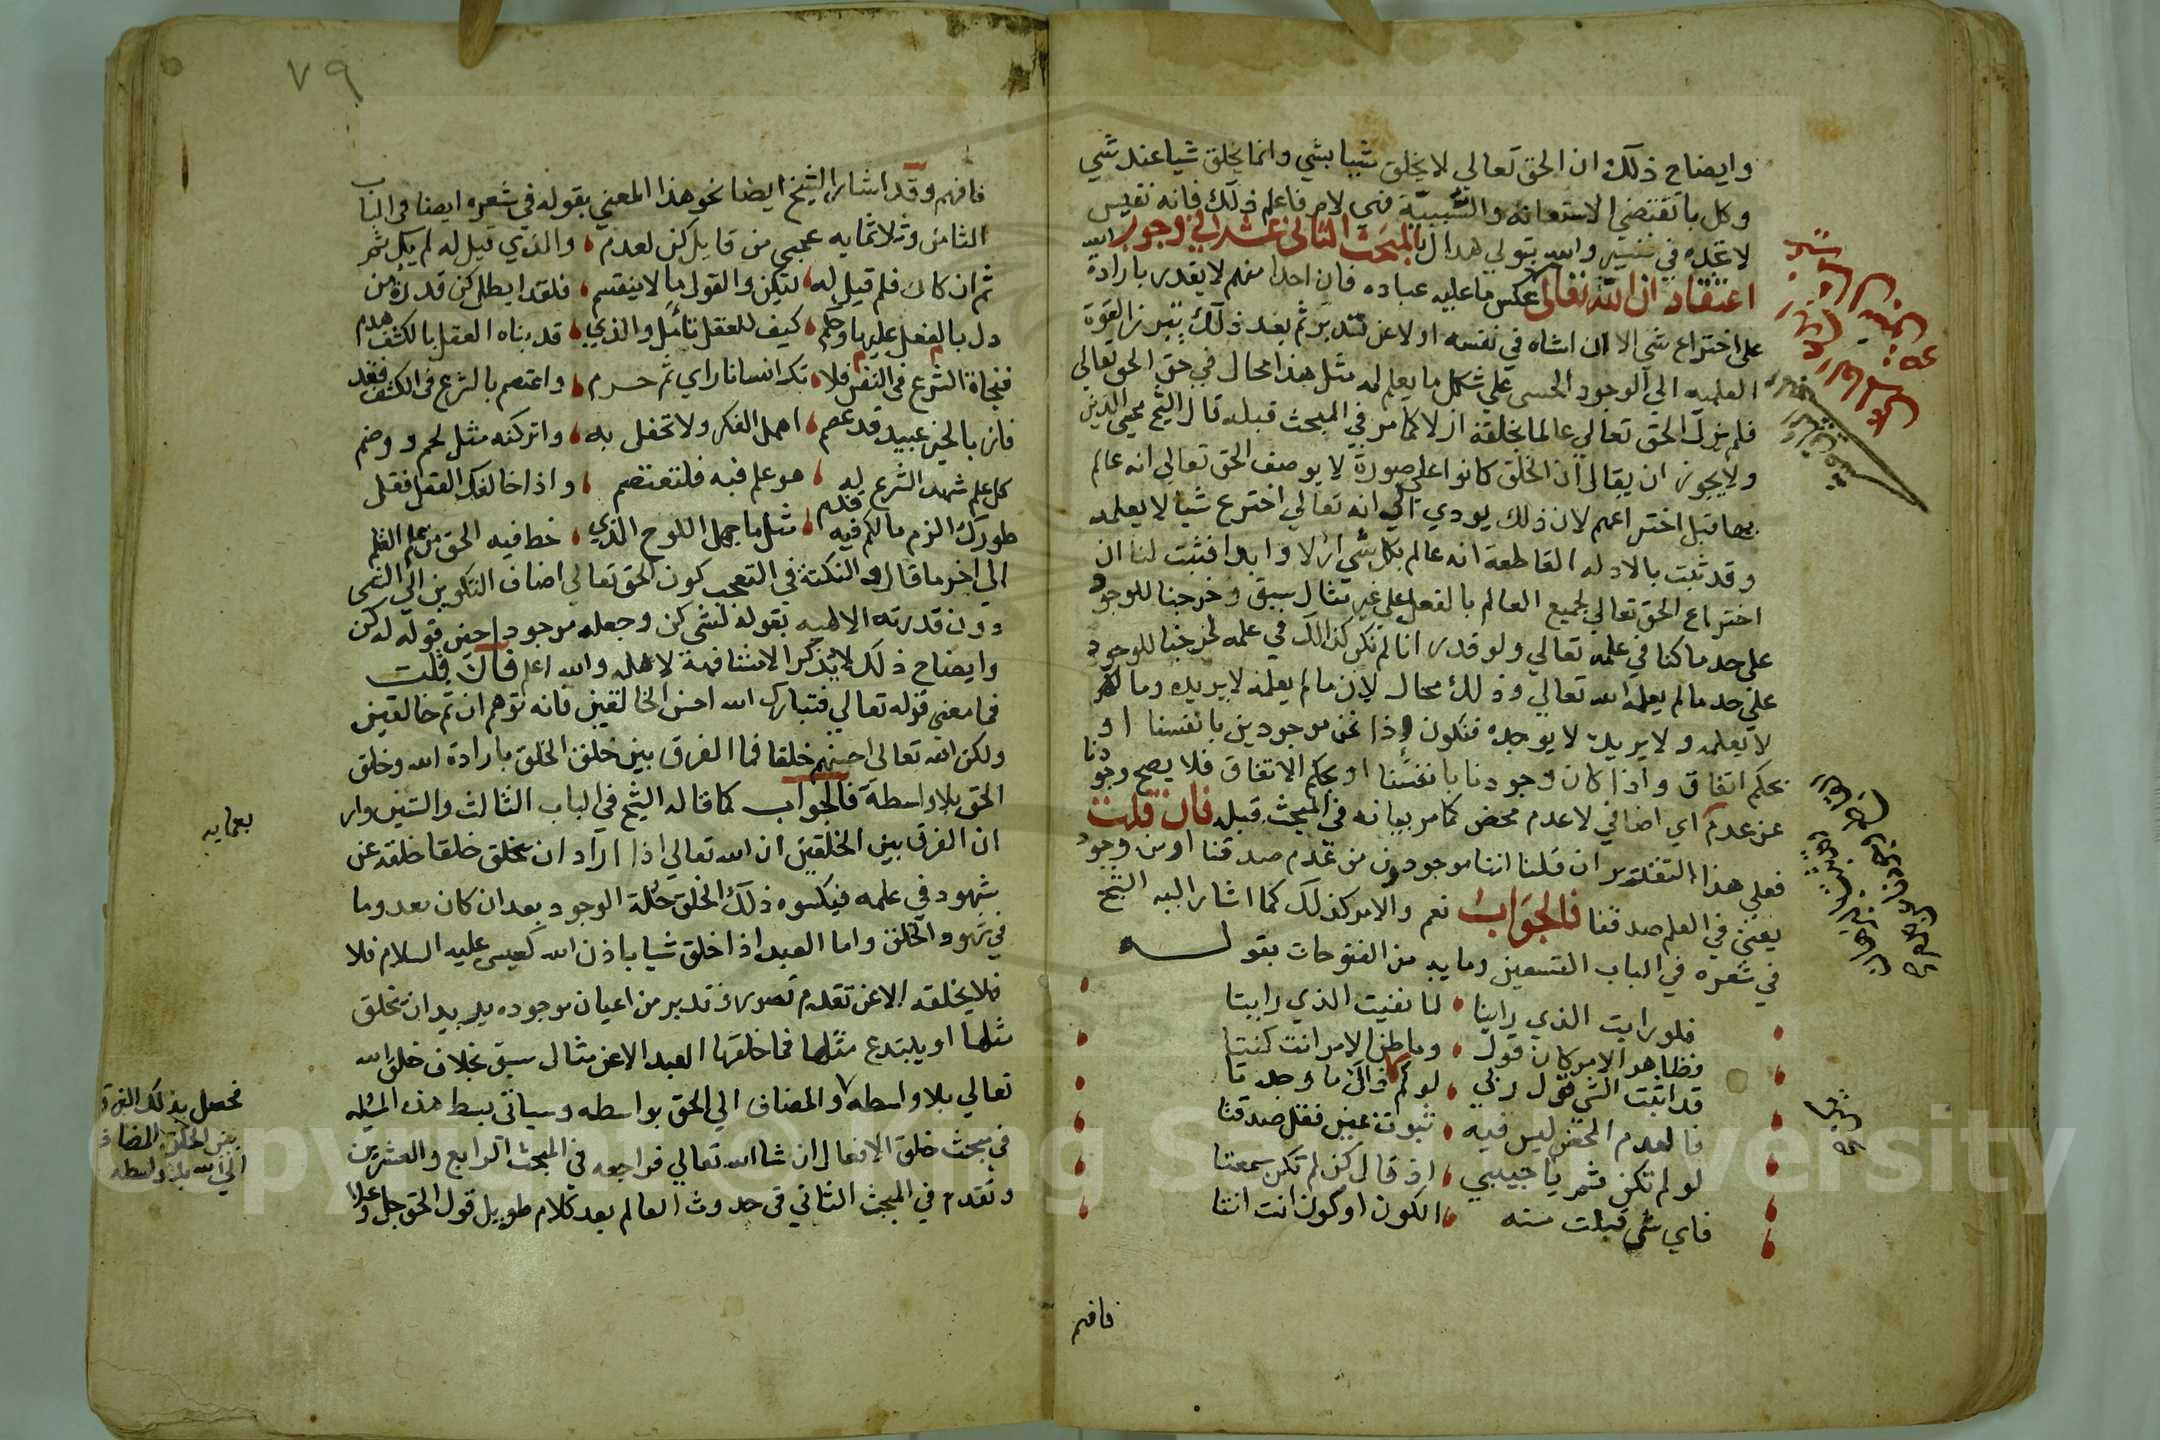 وايضاح ذلك ان الحق تعالى لا يخلق شيا بشي وانما يخلق شيا عند شي
وكل با تقتضي الاستعانه والسببية فهي لام فاعلم ذلك فانه نفيس
لا تجده في تفسير والله يتولي هداك المبحث الثاني عشر في وجوب
اعتقاد ان الله تعالى عكس ما عليه عباده فان احدا منهم لا يقدر بارادة
على اختراع شي الا ان انشاه في نفسه اولا عن تدبر ثم بعد ذلك يتبرز القوة
العلميه الي الوجود الحسي على شكل ما يعلم له مثل هذا محال في حق الحق تعالى
فلم يزل الحق تعالى عالما بخلقه ازلا كما مر في المبحث قبله قال الشيخ محيي الدين
ولا يجوز ان يقال ان الخلق كانوا على صورة لا يوصف الحق تعالى انه عالم
بها قبل اختراعهم لان ذلك يودي الي انه تعالى اخترع شيا لا يعلمه
وقد ثبت بالادله القاطعة انه عالم بكل شي ازلا وابدا فثبت لنا ان
اختراع الحق تعالى لجميع العالم بالفعل على غير مثال سبق وخرجنا للوجود
على حد ما كنا في علمه تعالى ولو قدر انا لم نكن كذلك في علمه لخرجنا للوجود
على حد ما لم يعلمه الله تعالى وذلك محال لان ما لم يعلمه لا يريده وما
لا يعلمه ولا يريده لا يوجده فنكون اذا نحن موجودين بانفسنا او
بحكم اتفاق واذا كان وجودنا بانفسنا او بحكم الاتفاق فلا يصح وجودنا
عن عدم اي اضافي لا عدم محض كما مر بيانه في المبحث قبله فان قلت
فعلى هذا التقدير ان قلنا اننا موجودون من عدم صدقنا او من وجود
يعني في العلم صدقنا فالجواب نعم والامر كذلك كما اشار اليه الشيخ
في شعره في الباب التسعين ومايه من الفتوحات بقوله
فلو رايت الذي راينا لما نفيت الذي رايتا
فظاهر الامر كان قول وباطن الامر انت كنتا
قد اثبت الشي قول ربي لو لم ذاك ما وجدتا
فالعدم المحض ليس فيه ثبوت عين فقل صدقتا
لو لم تكن ثم يا حبيبي اذ قال كن لم تكن سمعتا
فاي شي قبلت منه الكون او كون انت انتا
فافهم
٧٩
فافهم وقد اشار الشيخ ايضا نحو هذا المعني بقوله في شعره ايضا في الباب
الثامن وثلاثمايه عجبي من قايل كن لعدم والذي قيل له لم يك ثم
ثم ان كان فلم قيل له ليكن والقول ما لا ينقسم فلقد ابطل كن قدرة من
دل بالعقل عليها وحكم كيف للعقل تامل والذي قد بناه العقل بالكشف هدم
فنجاة الشرع في النفس فلا تك انسانا راي ثم حرم واعتصم بالشرع في الكشف فقد
فاز بالخير عبيد قد عصم اهمل الفكر ولا تحفل به واتركنه مثل لحم ووضم
كل علم شهد الشرع له هو علم فبه فلتعتصم واذا خالفك العقل فقل
طورك الزم مالكم فيه قدم مثل ما جهل اللوح الذي خط فيه الحق من علم القلم
الي اخر ما قال والنكتة في التعجب كون الحق تعالى اضاف التكوين الي الشي
دون قدرته الالهيه بقوله لشي كن وجعله موجودا حين قوله له كن
وايضاح ذلك لا يذكر الا مشافهة لاهله والله اعلم فان قلت
فما معني قوله تعالى فتبارك الله احسن الخالقين فانه توهم ان ثم خالقين
ولكن الله تعالى احسنهم خلقا فما الفرق بين خلق الخلق بارادة الله وخلق
الحق بلا واسطة فالجواب كما قاله الشيخ في الباب الثالث والستين وار
ان الفرق بين الخلقين ان الله تعالى اذا اراد ان يخلق خلقا خلقه عن
شهود في علمه فيكسوه ذلك الخلق حلة الوجود بعد ان كان معدوما
في شهود الخلق واما العبد اذا خلق شيا باذن الله كعيسى عليه السلام فلا
فلا يخلقه الا عن تقدم تصور وتدبر من اعيان موجوده يريد ان يخلق
مثلها او يبتدع مثلها فما خلقها العبد الا عن مثال سبق بخلاف خلق الله
تعالى بلا واسطه والمضاف الي الحق بواسطه وسياتي بسط هذه المسئله
في مبحث خلق الافعال ان شا الله تعالى فراجعه في المبحث الرابع والعشرين
وتقدم في المبحث الثاني في حدوث العالم بعد كلام طويل قول الحق جل وعلا
بعمايه
فحصل بذلك الفرق
بين الخلق المضاف
الي الله بلا واسطه
Copyright © King Saud University